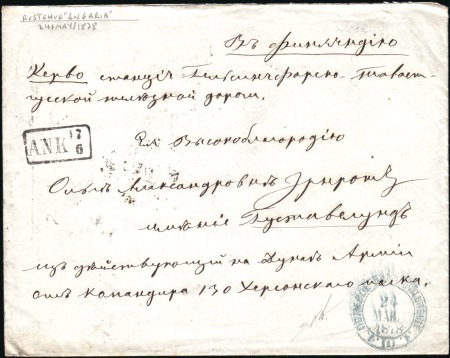 RUSTCHUK "BULGARIA"
24/MAY/1878
Въ Финляндію
Керво станція Гельсингфорско-Тавастгусской желѣзной дороги.
ANK 12/6
Ея Высокоблагородію
Александровнѣ
имѣніе Густавелундъ
изъ дѣйствующей на Дунаѣ Арміи
отъ Командира 130 Херсонскаго полка.
24
МАЯ
1878